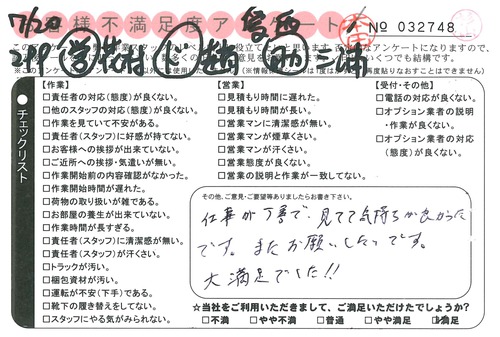 7/20
お客様不満足度アンケート
No 032748
チェックリスト
【作業】
□責任者の対応(態度)が良くない。
□他のスタッフの対応(態度)が良くない。
□作業を見ていて不安がある。
□責任者(スタッフ)に好感が持てない。
□お客様への挨拶が出来ていない。
□ご近所への挨拶・気遣いが無い。
□作業開始前の内容確認がなかった。
□作業開始時間が遅れた。
□荷物の取り扱いが雑である。
□お部屋の養生が出来ていない。
□作業時間が長すぎる。
□責任者(スタッフ)に清潔感が無い。
□責任者(スタッフ)が汗くさい。
□トラックが汚い。
□梱包資材が汚い。
□運転が不安(下手)である。
□靴下の履き替えをしてない。
□スタッフにやる気がみられない。
【営業】
□見積もり時間に遅れた。
□見積もり時間が長い。
□営業マンに清潔感が無い。
□営業マンが煙草くさい。
□営業マンが汗くさい。
□営業態度が良くない。
□営業の説明と作業が一致してない。
【受付・その他】
□電話の対応が良くない。
□オプション業者の説明
・作業が良くない。
□オプション業者の対応
(態度)が良くない。
その他、ご意見・ご要望等ありましたらお書き下さい。
仕事が丁寧で、見てて気持ちが良かった
です。またお願いしたいです。
大満足でした!!
☆当社をご利用いただきまして、ご満足いただけたでしょうか?
□不満 □やや不満 □普通 □やや満足 ☑満足